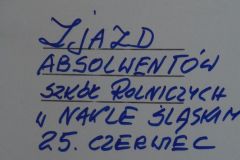 ZJAZD
ABSOLWENTÓW
SZKÓŁ ROLNICZYCH
W NAKLE ŚLĄSKIM
25. CZERWIEC